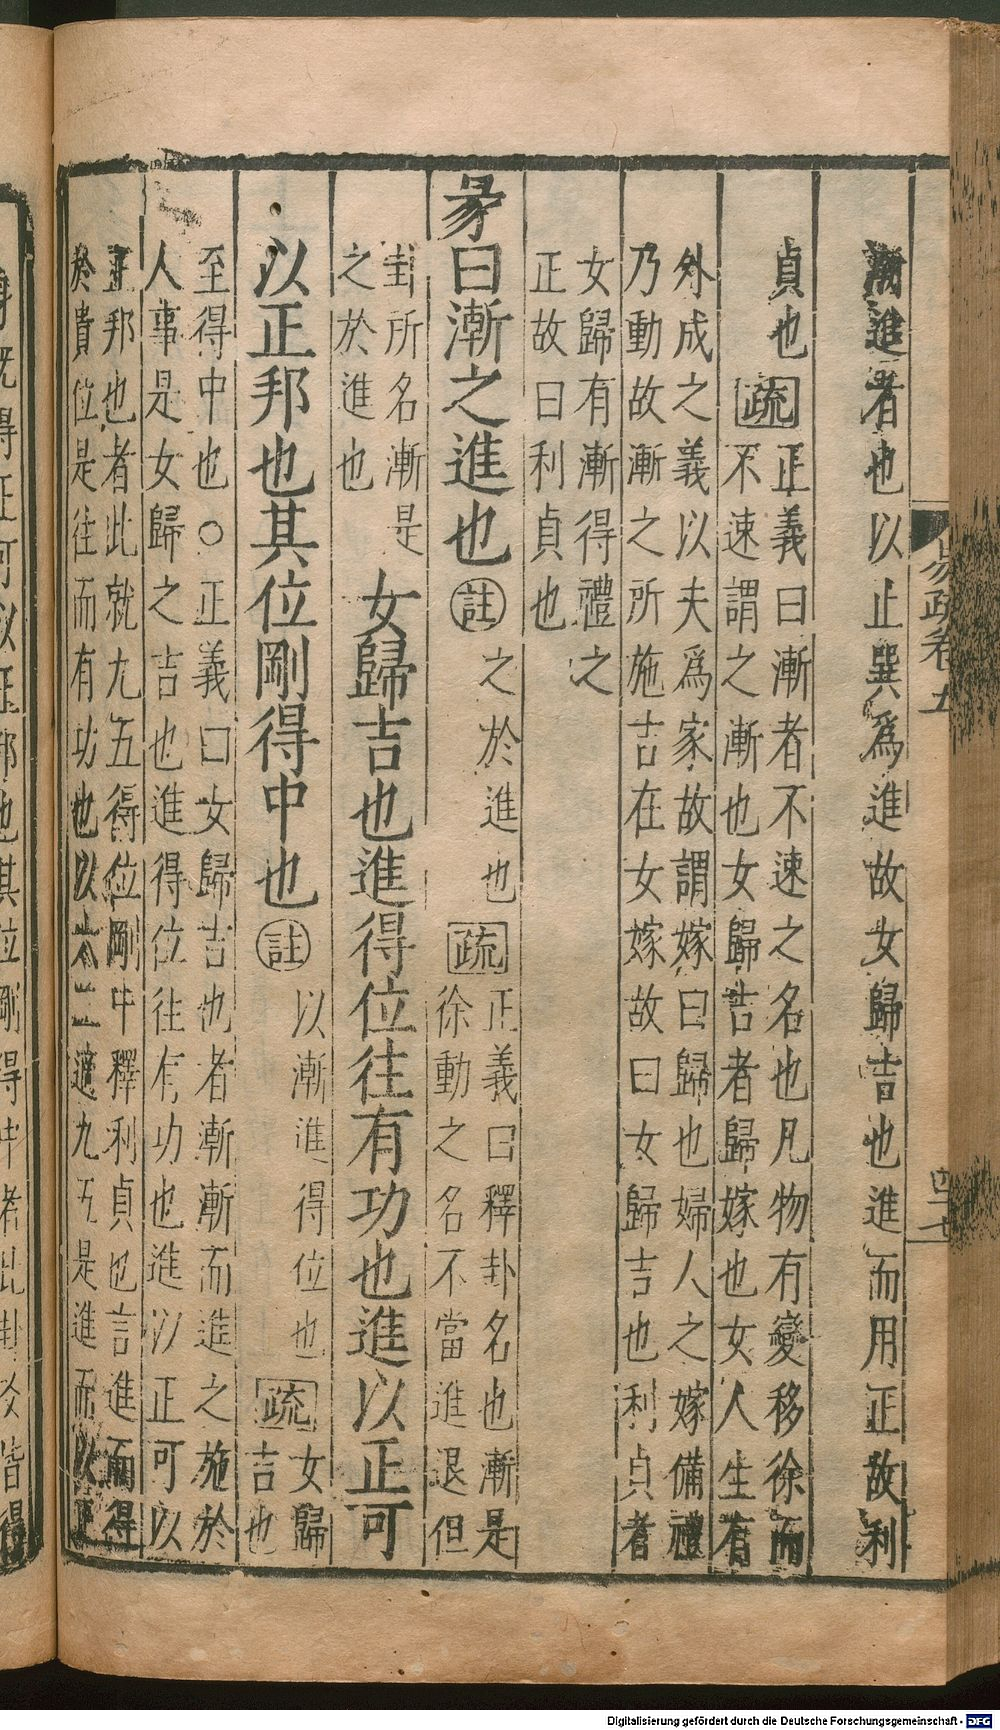 漸進者也以止巽爲進故女歸吉也進而用正故利
貞也疏正義曰漸者不速之名也凡物有變移徐而
不速謂之漸也女歸吉者歸嫁也女人生有
外成之義以夫爲家故謂嫁曰歸也婦人之嫁備禮
乃動故漸之所施吉在女嫁故曰女歸吉也利貞者
女歸有漸得禮之
正故曰利貞也
彖曰漸之進也註之於進也疏正義曰釋卦名也漸是
徐動之名不當進退但
卦所名漸是
之於進也
女歸吉也進得位往有功也進以正可
以正邦也其位剛得中也註以漸進得位也疏女歸
吉也
至得中也○正義曰女歸吉也者漸漸而進之施於
人事是女歸之吉也進得位往有功也進以正可以
正邦也者此就九五得位剛中釋利貞也言進而得
於貴位是往而有功也以六二適九五是進而以正
易疏卷五
四十七
Digitalisierung gefördert durch die Deutsche Forschungsgemeinschaft - DFG